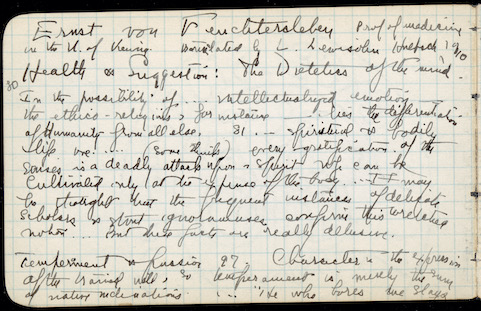 Ernst von Feuchtersleben Prof of medicine
in the U. of Vienna. translated by L. Lewisohn Huebsch 1910
Health & Suggestion: The Dietetics of the mind.
30 In the possibility of ... intellectualized emotion,
the ethico-religious for instance ... lies the differentiation
of Humanity from all else. 31 - spiritual & bodily
life are ... (some think) every gratification of the
senses is a deadly attack upon a spirit wh can be
cultivated only at the expense of the body ... It may
be thought that the frequent instances of delicate
scholars & stout ignoramuses confirm this wretched
notion But these facts are really delusive.
Temperament & Passion 97. Character is the expression
of the trained will, so temperament is merely the sum
of native inclinations. ... "He who bores me